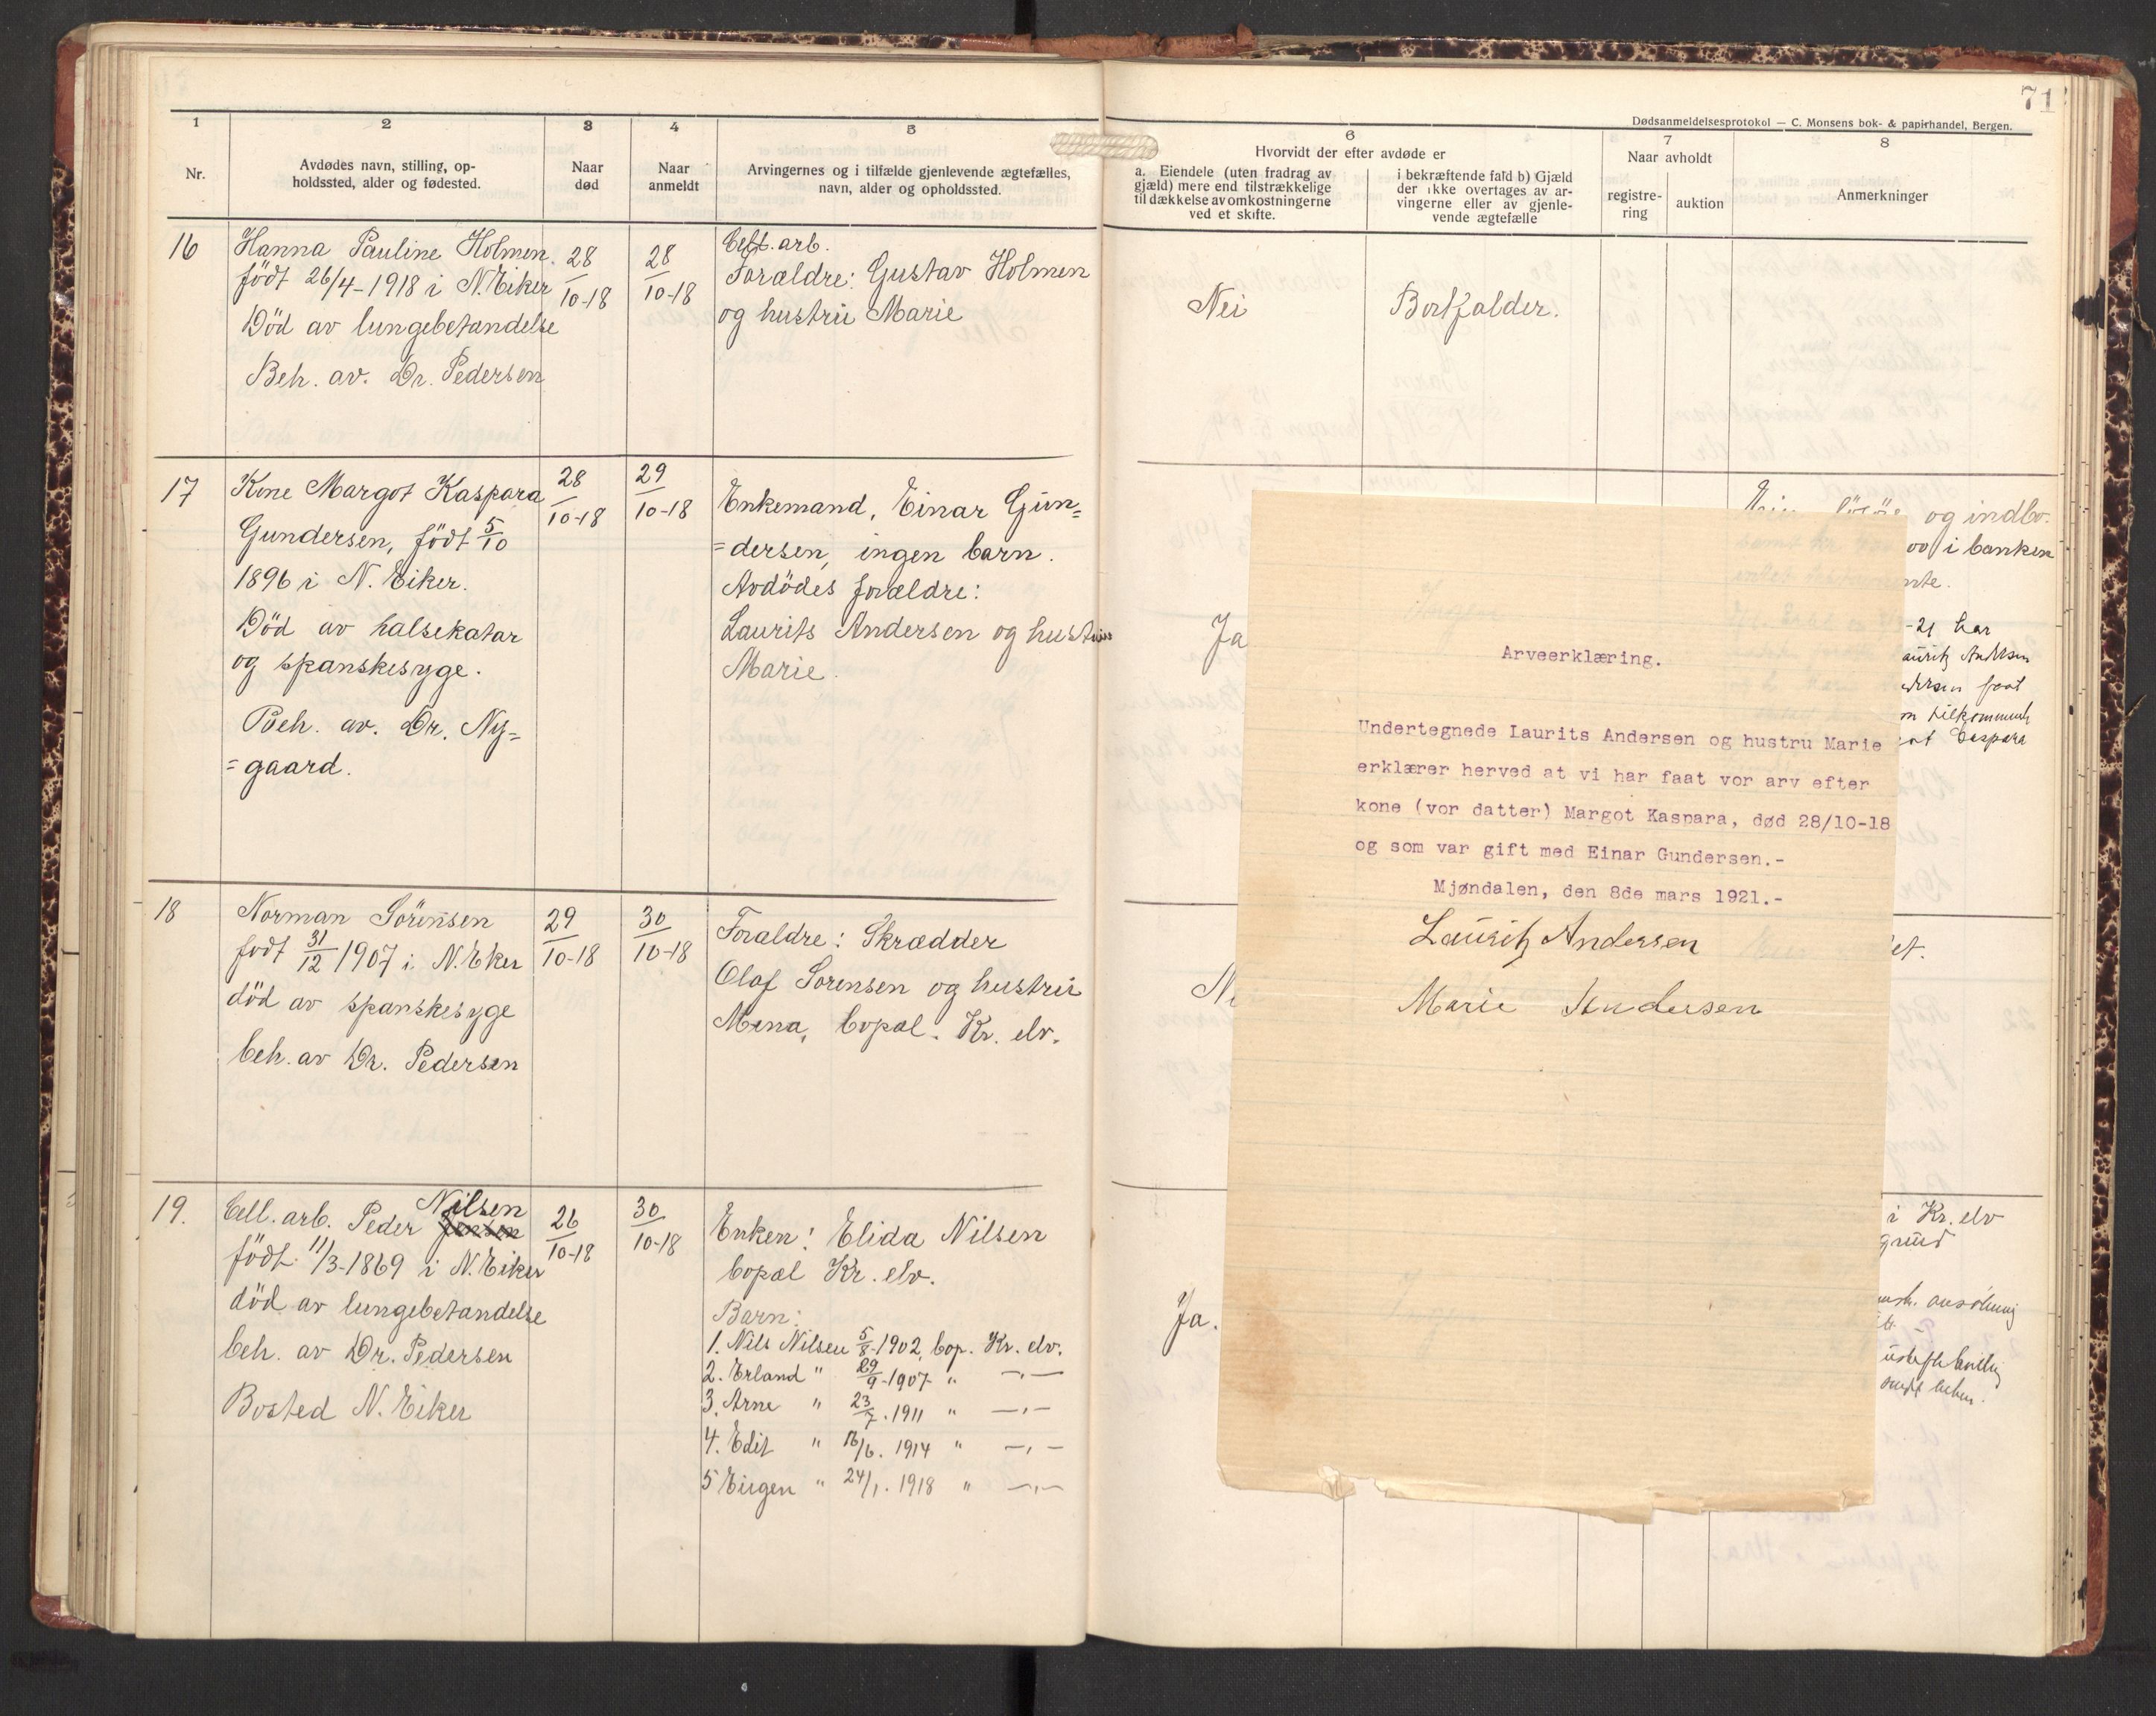 71
Dødsanmeldelsesprotokol — C. Monsens bok- & papirhandel, Bergen.
1
2
3
4
5
Nr.
Avdødes navn, stilling, op-
holdssted, alder og fødested.
Naar
død
Naar
anmeldt
Arvingernes og i tilfælde gjenlevende ægtefælles,
navn, alder og opholdssted.
6
7
8
Hvorvidt der efter avdøde er
a. Eiendele (uten fradrag av
gjæld) mere end tilstrækkelige
til dækkelse av omkostningerne
ved et skifte.
i bekræftende fald b) Gjæld
der ikke overtages av ar-
vingerne eller av gjenle-
vende ægtefælle
Naar avholdt
registre-
ring
auktion
Anmerkninger
16
Hanna Pauline Holmen.
född 26/4-1918 i N. Eiker
Död av lungebetandelse
Beh. av. Dr. Pedersen
28/10-18
28/10-18
Cell. arb.
Foraldre: Gustav Holmen
og hustru Marie
Nei
Bortfalder.
17
Kone Margot Kaspara
Gundersen, född 5/10
1896 i N. Eiker.
Död av halsekatar
og spanskesyge.
Beh. av. Dr. Ny=
=gaard.
28/10-18
29/10-18
Enkemand, Einar Gun=
=dersen, ingen barn.
Avdödes foraldre:
Laurits Andersen og hustru
Marie.
Ja
og indbo.
i banken
-21 har
Lauritz Andersen
faat
tilkommende
Caspara
Arveerklæring.
Undertegnede Laurits Andersen og hustru Marie
erklærer herved at vi har faat vor arv efter
kone (vor datter) Margot Kaspara, død 28/10-18
og som var gift med Einar Gundersen.-
Mjøndalen, den 8de mars 1921.-
Lauritz Andersen
Marie Andersen
18
Norman Sörensen
född 31/12 1907 i N. Eker
död av spanskesyge
beh. av Dr. Pedersen
29/10-18
30/10-18
Foraldre: Skrædder
Olaf Sorensen og hustru
Mena, bopæl. Kr. elv.
19.
Nilsen
Cell. arb. Peder Jensen
född 11/3-1869 i N. Eiker
död av lungebetandelse
beh. av Dr. Pedersen
Bosted N. Eiker
26/10-18
30/10-18
Enken: Elida Nilsen
bopæl Kr. elv.
Barn:
1. Nils Nilsen 5/8-1902, bop. Kr. elv.
2. Erland " 29/9-1907 " —,—
3. Arne " 23/7. 1911 " —,—
4. Edit " 16/6. 1914 " —,—
5 Eugen " 24/1. 1918 " —,—
Ja.
i Kr. elv
grund